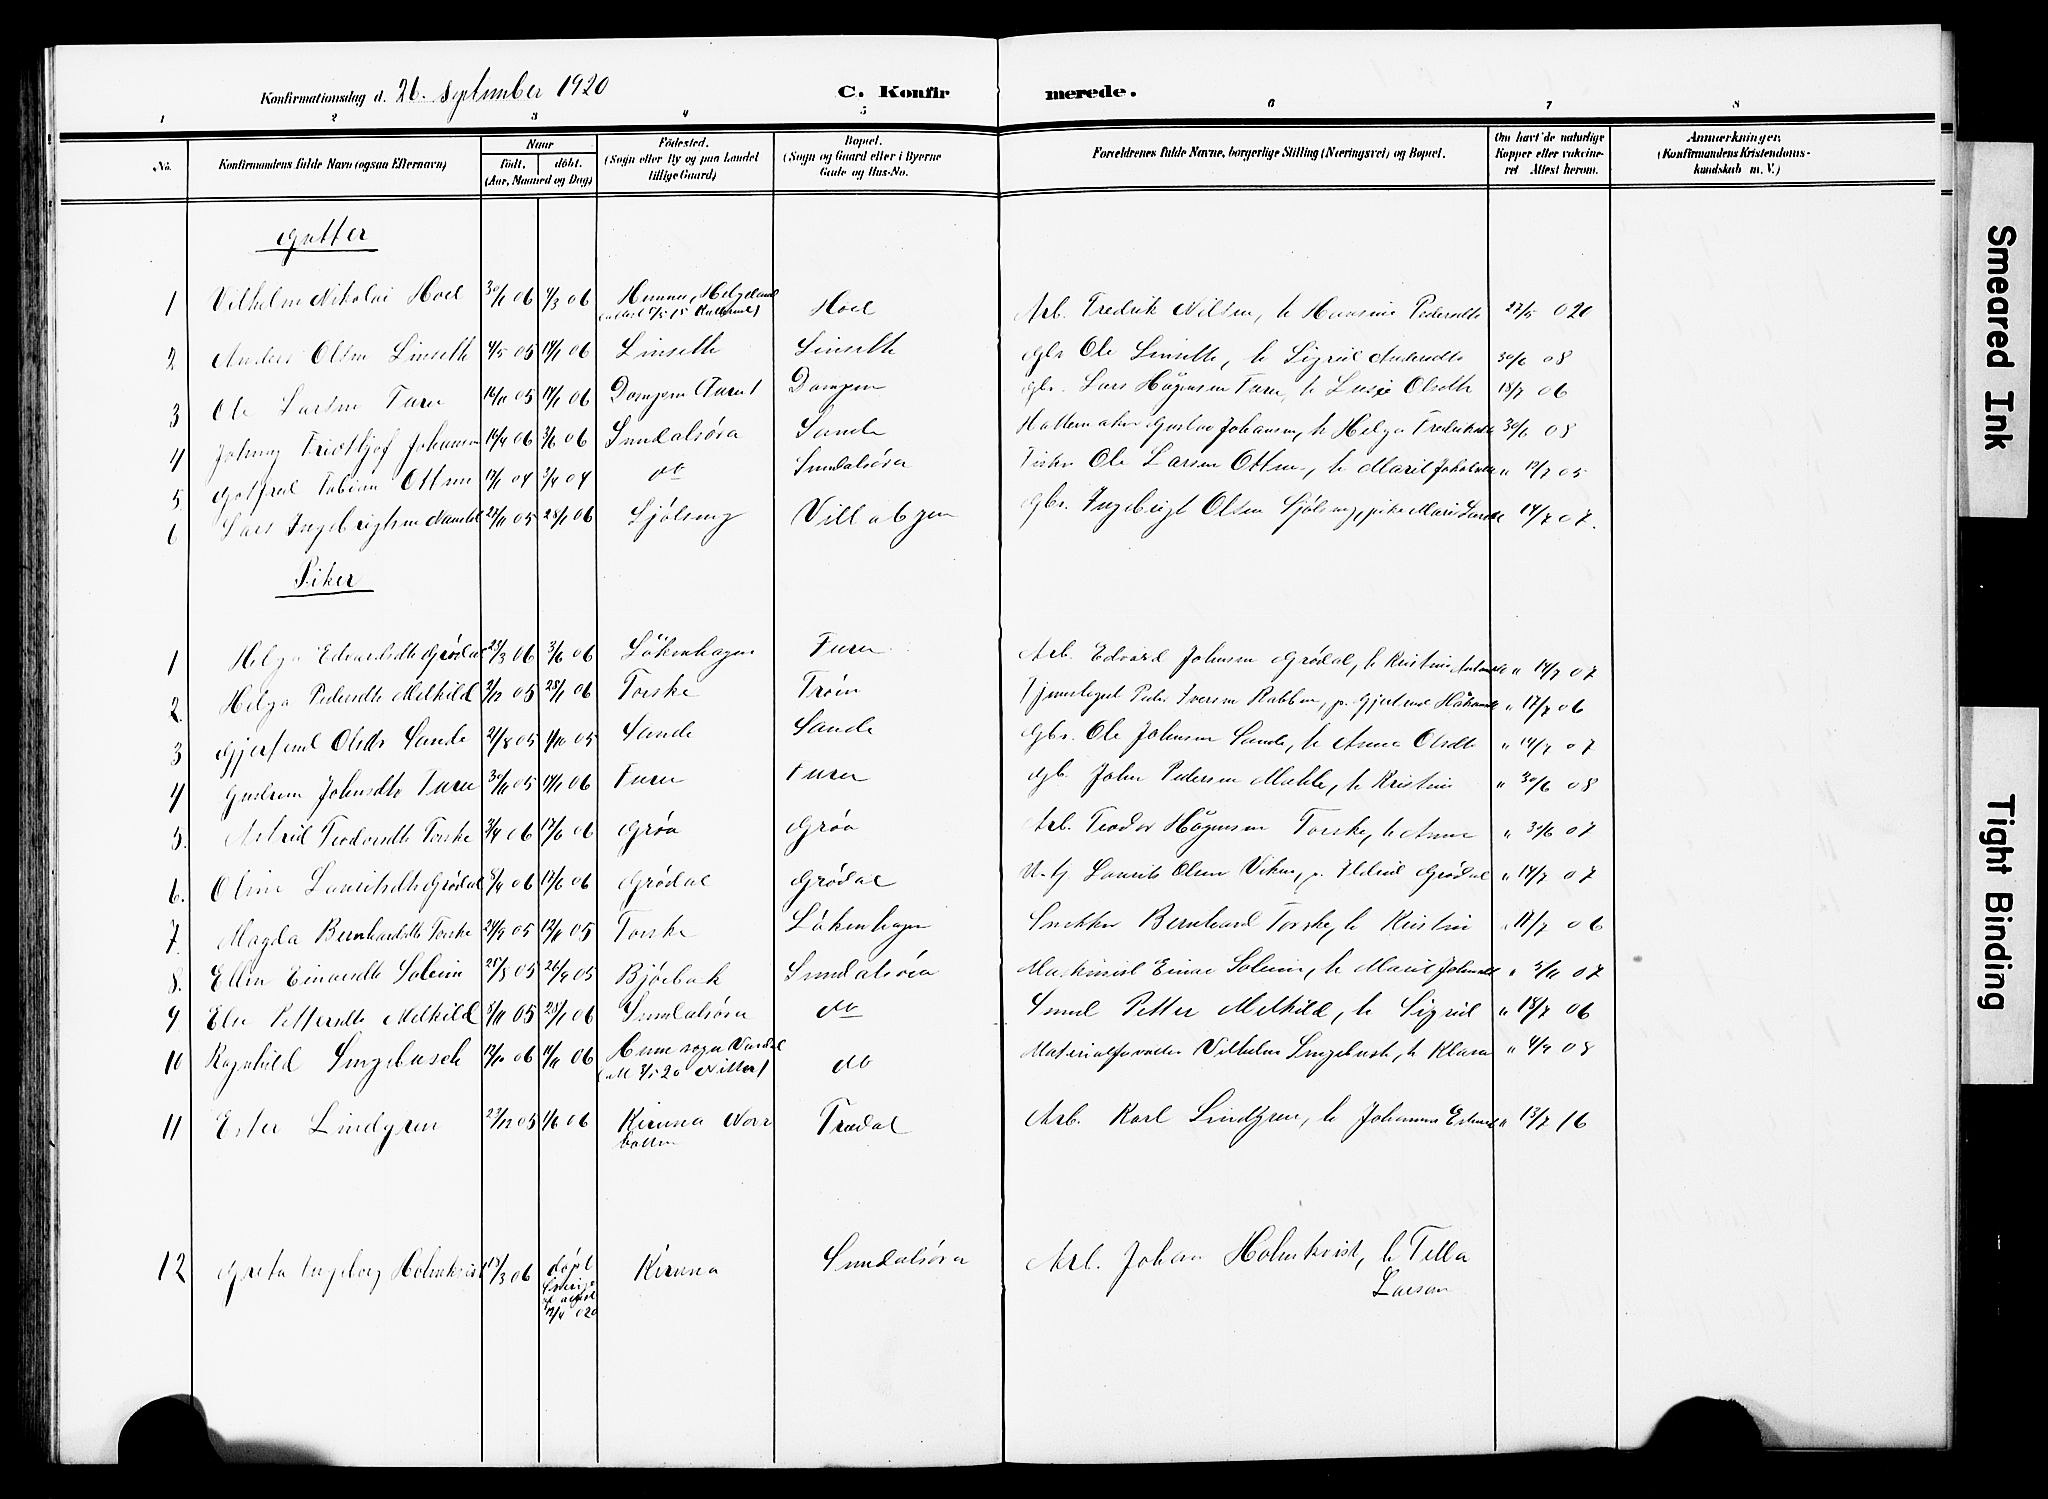 Konfirmationsdag d. 26. September 1920 C. Konfirmerede.
1 2 3 4 5 6 7 8
No. Konfirmandens fulde Navn (ogsaa Efternavn) Naar født, døbt. (Aar, Maaned og Dag) Fødested. (Sogn eller By og paa Landet tillige Gaard) Bopæl. (Sogn og Gaard eller i Byerne Gade og Hus-No. Forældrenes fulde Navne, borgerlige Stilling (Næringsvei) og Bopæl. Om havt de naturlige Kopper eller vakcineret Attest herom. Anmærkninger. (Konfirmandens Kristendomskundskab m. V.)
Gutter
1 Vilhelm Nikolai Hoel 30/1 06 4/3 06 Hemnes, Helgeland Hoel Arb. Fredrik Nilsen, h Hansine Pedersdtr 27/5 020
2 Anders Olsen Linseth 4/5 05 14/1 06 Linseth Linseth Gbr Ole Linseth, h Sigrid Andersdtr 30/6 08
3 Ole Larsen Furu 16/11 05 14/1 06 Dompem Furu Dompem Gbr. Lars Hågensen Furu, h Olsdtr 18/7 06
4 Johnny Fridthjof Johansen 14/4 06 3/6 06 Sundalsøra Sande Gustav Johansen, h Helga Fredriksdtr 30/6 08
5 Gotfred Tobias Ottsen 17/1 04 3/4 04 do Sundalsøra Fisker Ole Larsen Ottsen, h Marit " 18/7 05
6 Lars Ingebrigtsen 27/11 05 28/1 06 Sjölseng Villabyen Gbr. Ingebrigt Olsen Sjölseng, pike Marit 14/7 07.
Piker
1 Helga Edvardsdtr Grødal 23/3 06 3/6 06 Løkenhagen Furu Arb. Edvard Johnsen Grødal, h Kristine " 14/7 07
2. Helga Pedersdtr Melkild 2/12 05 28/1 06 Torske Trøen Peder Iversen Rabben, p. Gjertrud " 17/7 06
3 Gjertrud Olsdtr Sande 21/8 05 1/10 05 Sande Sande Gbr. Ole Johnsen Sande, h Anne Olsdtr " 14/7 07
4 Gudrun Johnsdtr Furu 30/11 05 14/1 06 Furu Furu Gb. John Pedersen h Kristine " 30/6 08
5. Astrid Teodorsdtr Torske 3/4 06 17/6 06 Grøa Grøa Arb. Teodor Hågensen Torske, h Anne " 30/6 07
6. Oline Lauritsdtr Grødal 8/4 06 17/6 06 Grødal Grødal Laurits Olsen Viken, p. Ildrid Grødal " 14/7 07
7. Magda Bernhardsdtr Torske 24/9 05 12/11 05 Torske Løkenhagen Snekker Bernhard Torske, h Kristine " 11/7 06
8. Ellen Einarsdtr Soleim 28/8 05 26/9 05 Bjørbak Sundalsøra Maskinist Einar Soleim, h Marit " 5/11 07
9 Else Pettersdtr Melkild 8/11 05 28/1 06 Sundalsøra do Smed Petter Melkild, h Sigrid " 18/7 06
10 Ragnhild Smgebusch do Materialforvalter Vilhelm h Klara " 4/9 08
11 Ester Lindgren 23/12 05 1/6 06 Kiruna Norrbotten Trædal Arb. Karl Lindgren, h Johanna " 13/7 16
12 Greta Ingeborg Holmkvist 15/3 06 døpt Kiruna Sundalsøra Arb. Johan Holmkvist, h Tilla
12/4 020 Larson
Smeared Ink
Tight Binding